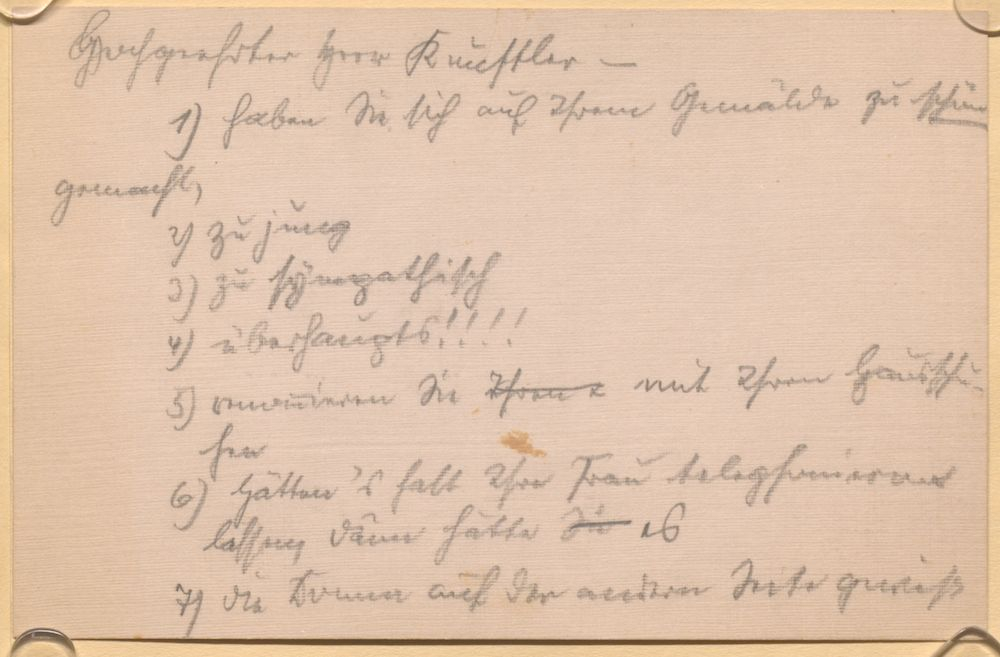 Hochgeehrter Herr Künstler —
1) haben Sie sich auf Ihrem Gemälde zu schön
gemacht,
2) zu jung
3) zu sympathisch
4) überhaupts!!!!
5) renomieren Sie mit Ihren Hausschu-
hen
6) Hätten's halt Ihre Frau telephonieren
lassen, dann hätte Sie es
7) die auf der andern Seite gewiß